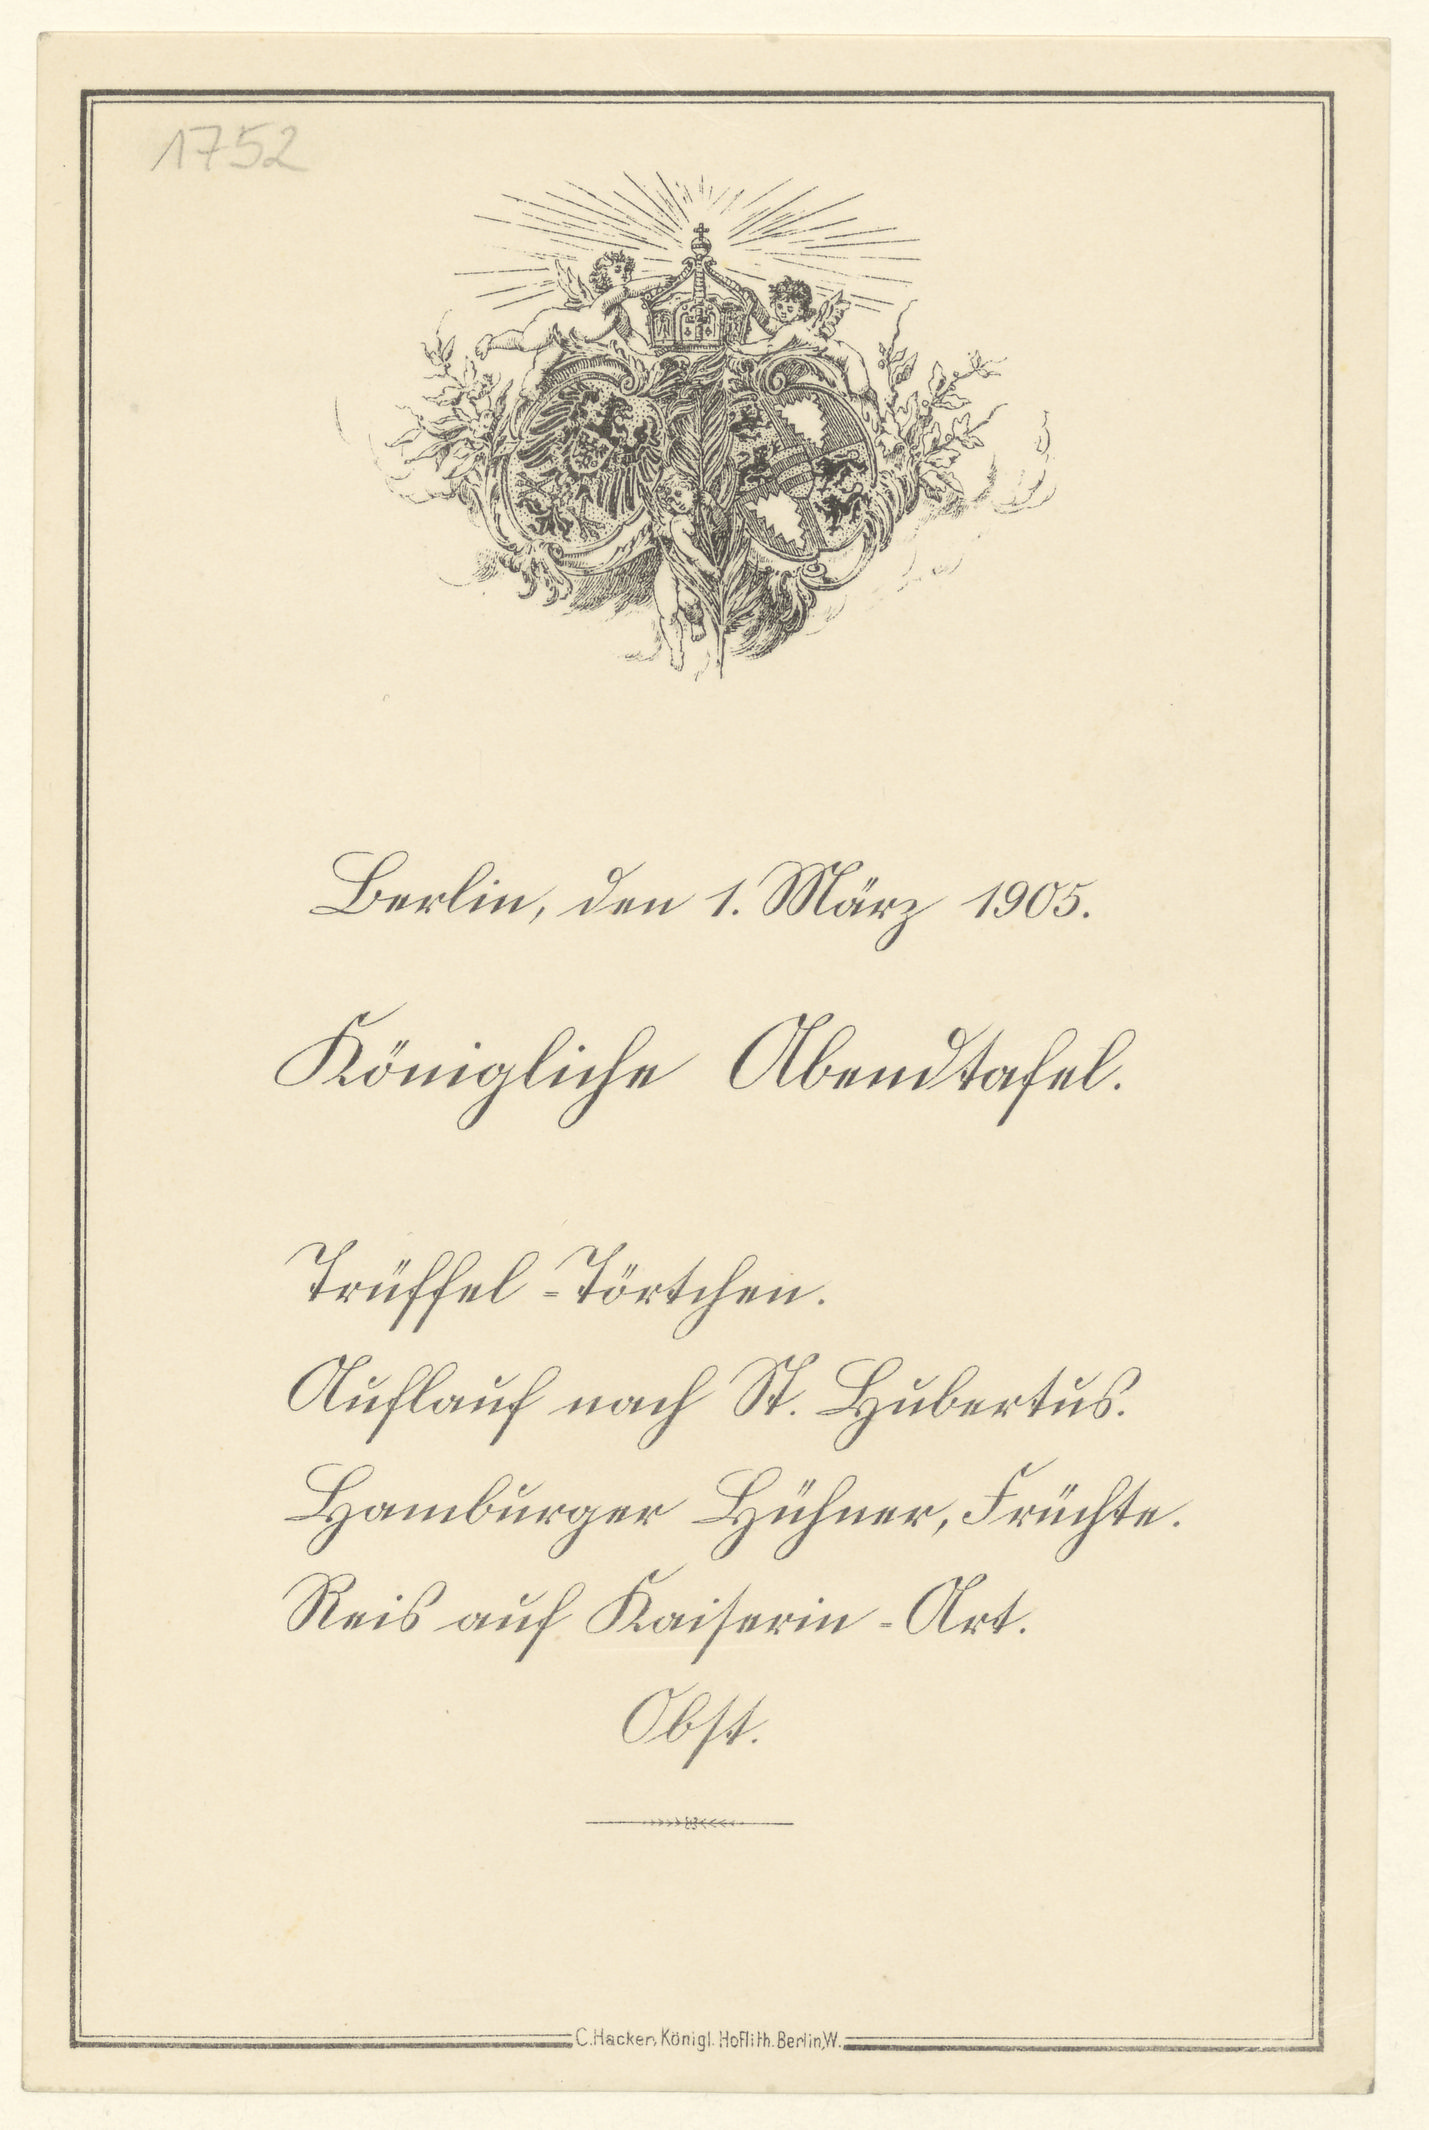 1752
Berlin, den 1. März 1905.
Königliche Abendtafel.
Trüffel-Törtchen.
Auflauf nach St. Hubertus.
Hamburger Hühner, Früchte.
Reis auf Kaiserin-Art.
Obst.
C. Hacker, Königl. Hoflith. Berlin, W.